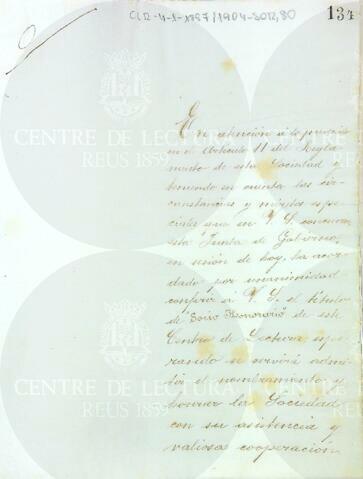 CLR-4-1-1897/1904-SO12,80
134
En atención á lo prevenido
en el Artículo 11 del Regla-
mento de esta Sociedad y
teniendo en cuenta las cir-
cunstancias y méritos espe-
ciales que en V. S. concurren
esta Junta de Gobierno,
en sesión de hoy, ha acor-
dado por unanimidad
conferir á V. S. el título
de "Socio Honorario" de este
Centro de Lectura espe-
rando se servirá admi-
tir el nombramiento y
honrar la Sociedad
con su asistencia y
valiosa cooperación
CENTRE DE LECTURA
REUS 1859
CENTRE DE LECTURA
REUS 1859